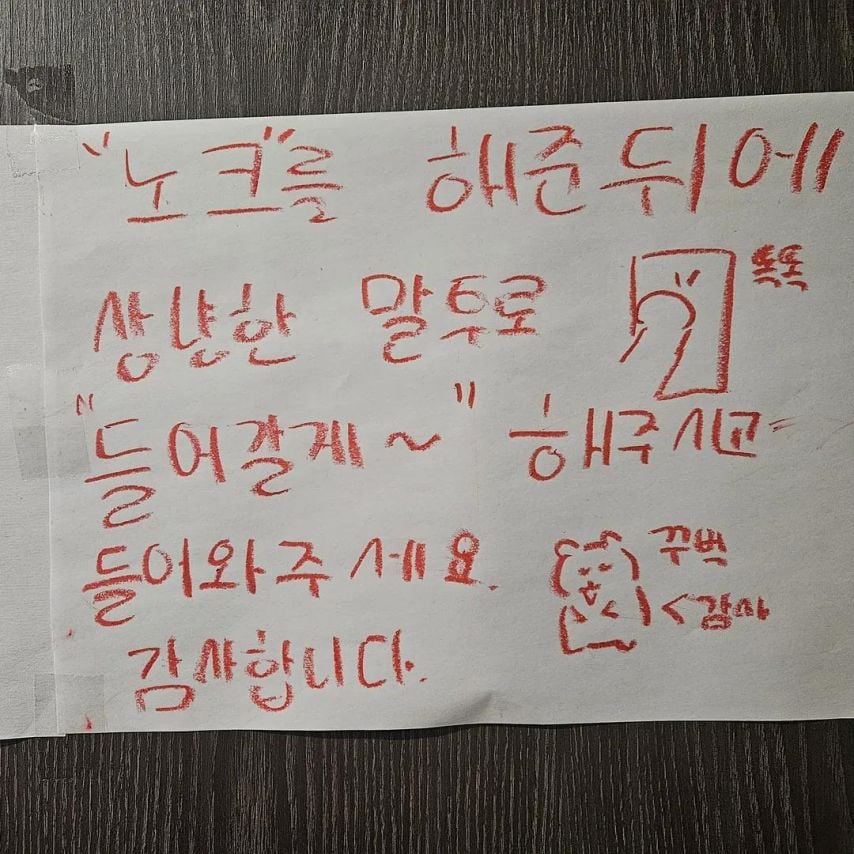 "노크"를 해준 뒤에
상냥한 말투로
똑똑
"들어갈게~" 해주시고
들어와주세요.
꾸벅
<감사
감사합니다.